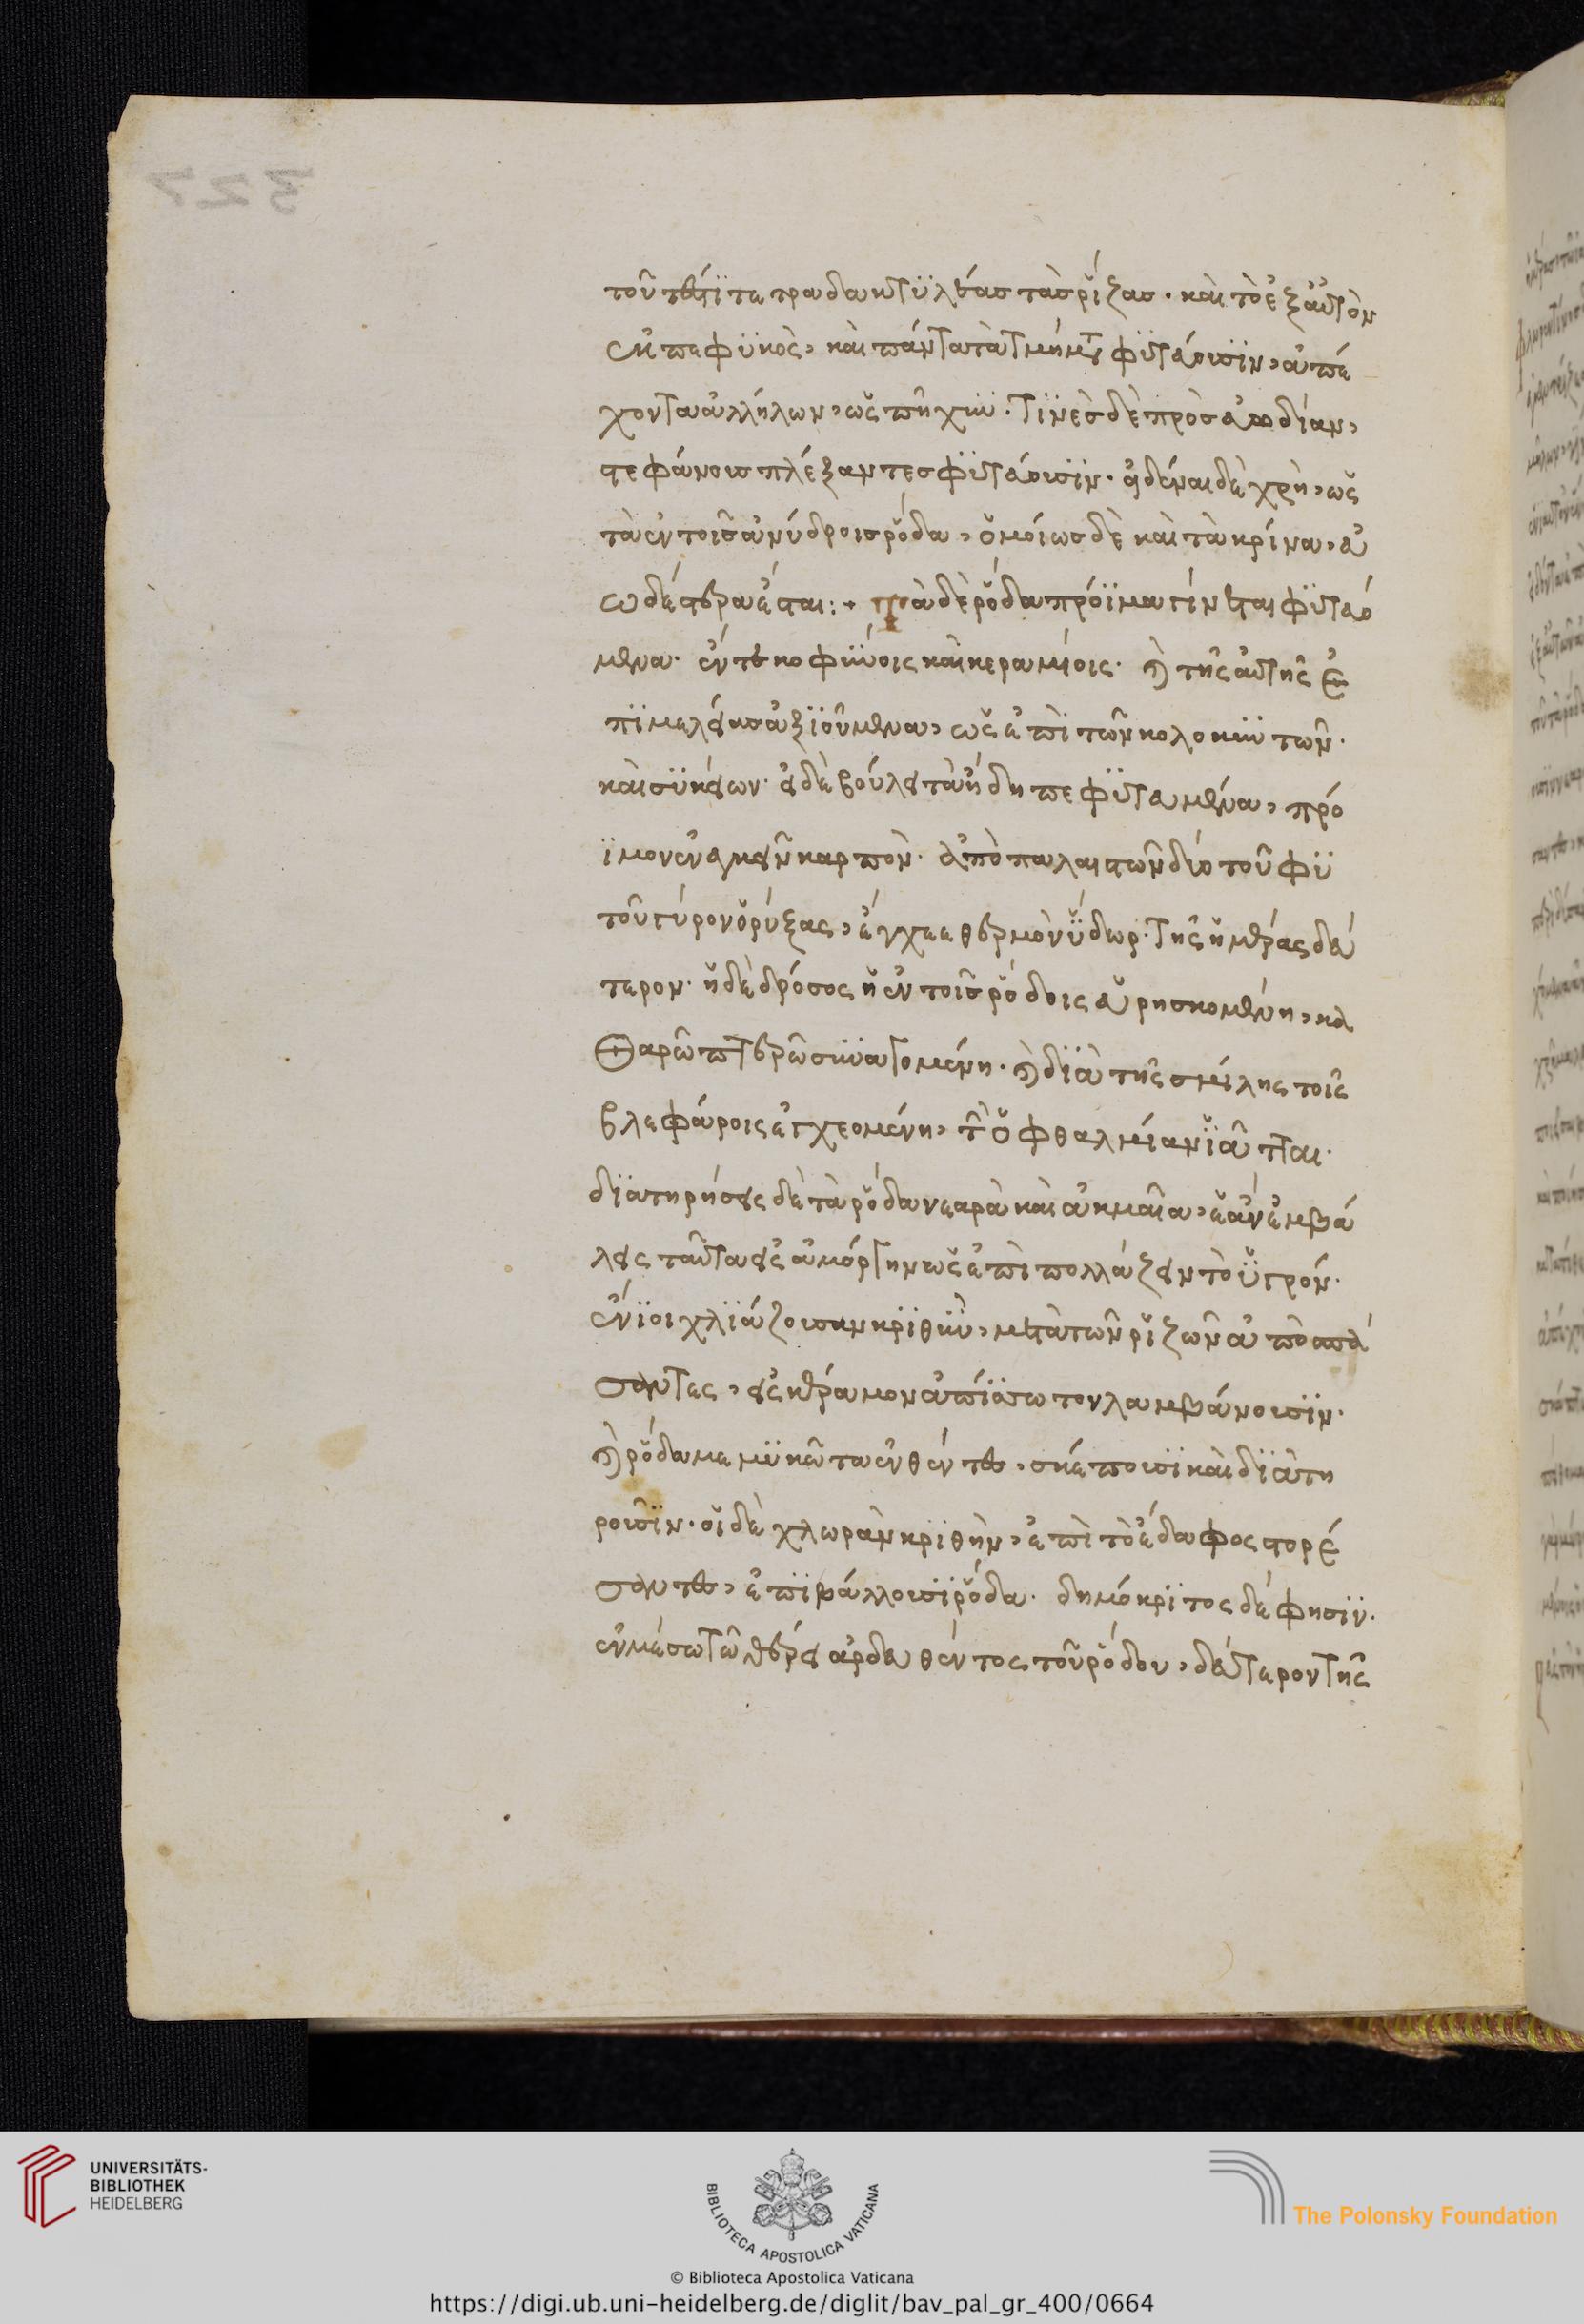 τοῦτέστϊ τετραδακτϋλιαίασ τὰσ ῥίζασ. καὶ τὸ ἐξ αὐτὸν
ἐκπεφϋκὸς, καὶ πάντα τὰ τμήματα φϋτεύουσϊν, ἀπέ
χοντα ἀλλήλων, ὡς πῆχϋν. τϊνὲσ δὲ πρὸσ εὐωδίαν,
στεφάνουσ πλέξαντεσ φϋτεύουσϊν. εἰδέναι δὲ χρὴ, ὡς
τὰ ἐν τοῖσ ἀνύδροισ ῥόδα, ὁμοίωσ δὲ καὶ τὰ κρίνα, εὐ
ωδέστερα ἔσται:+ τὰ δὲ ῥόδα πρόϊμα γίνεται φϋτευό
μενα. ἔν τε κοφϋνοις καὶ κεραμίοις. καὶ τῆς αὐτῆς ἐ
πϊμελείασ ἀξϊοῦμενα, ὡς ἐπὶ τῶν κολοκϋντῶν.
καὶ σϋκείων. εἰ δὲ βούλει τὰ ἤδη πεφϋτευμένα, πρό
ϊμον ἐνεγκεῖν καρπὸν. ἀπὸ παλαιστῶν δύο τοῦ φϋ
τοῦ γύρον ὀρύξας, ἔγχεε θερμὸν ὕδωρ. τῆς ἡμέρας δεύ
τερον. ἡ δὲ δρόσος ἡ ἐν τοῖσ ῥόδοις εὑρησκομένη, κα
θαρῶ πτερῶ σϋναγομένη. καὶ δϊὰ τῆς σμίλης τοῖς
βλεφάροις ἐγχεομένη, τὴν ὀφθαλμίαν ϊᾶται.
δϊατηρήσεις δὲ τὰ ῥόδα νεαρὰ καὶ ἀκμαῖα, ἐὰν ἐμβά
λεις ταῦτα εἰς ἀμόργην ὡς ἐπὶ πολλάζειν τὸ ὑγρόν.
ἔνϊοι χλϊάζουσαν κρϊθὴν, μετὰ τῶν ῥϊζῶν ἀποσπά
σαντες, εἰς κέραμον ἀπίσσωτον λαμβάνουσϊν.
καὶ ῥόδα μεμϋκῶτα ἐνθέντες, σκέπουσϊ καὶ δϊατη
ροῦσϊν. οἱ δὲ χλωρὰν κρϊθὴν, ἐπὶ τὸ ἔδαφος στορέ
σαντες, ἐπϊβάλλουσϊ ῥόδα. δημόκρϊτος δέ φησϊν.
ἐν μέσω τῶ θέρει ἀρδευθέντος τοῦ ῥόδου, δεύτερον τῆς
327
UNIVERSITÄTS-
BIBLIOTHEK
HEIDELBERG
BIBLIOTECA APOSTOLICA VATICANA
The Polonsky Foundation
© Biblioteca Apostolica Vaticana
https://digi.ub.uni-heidelberg.de/diglit/bav_pal_gr_400/0664